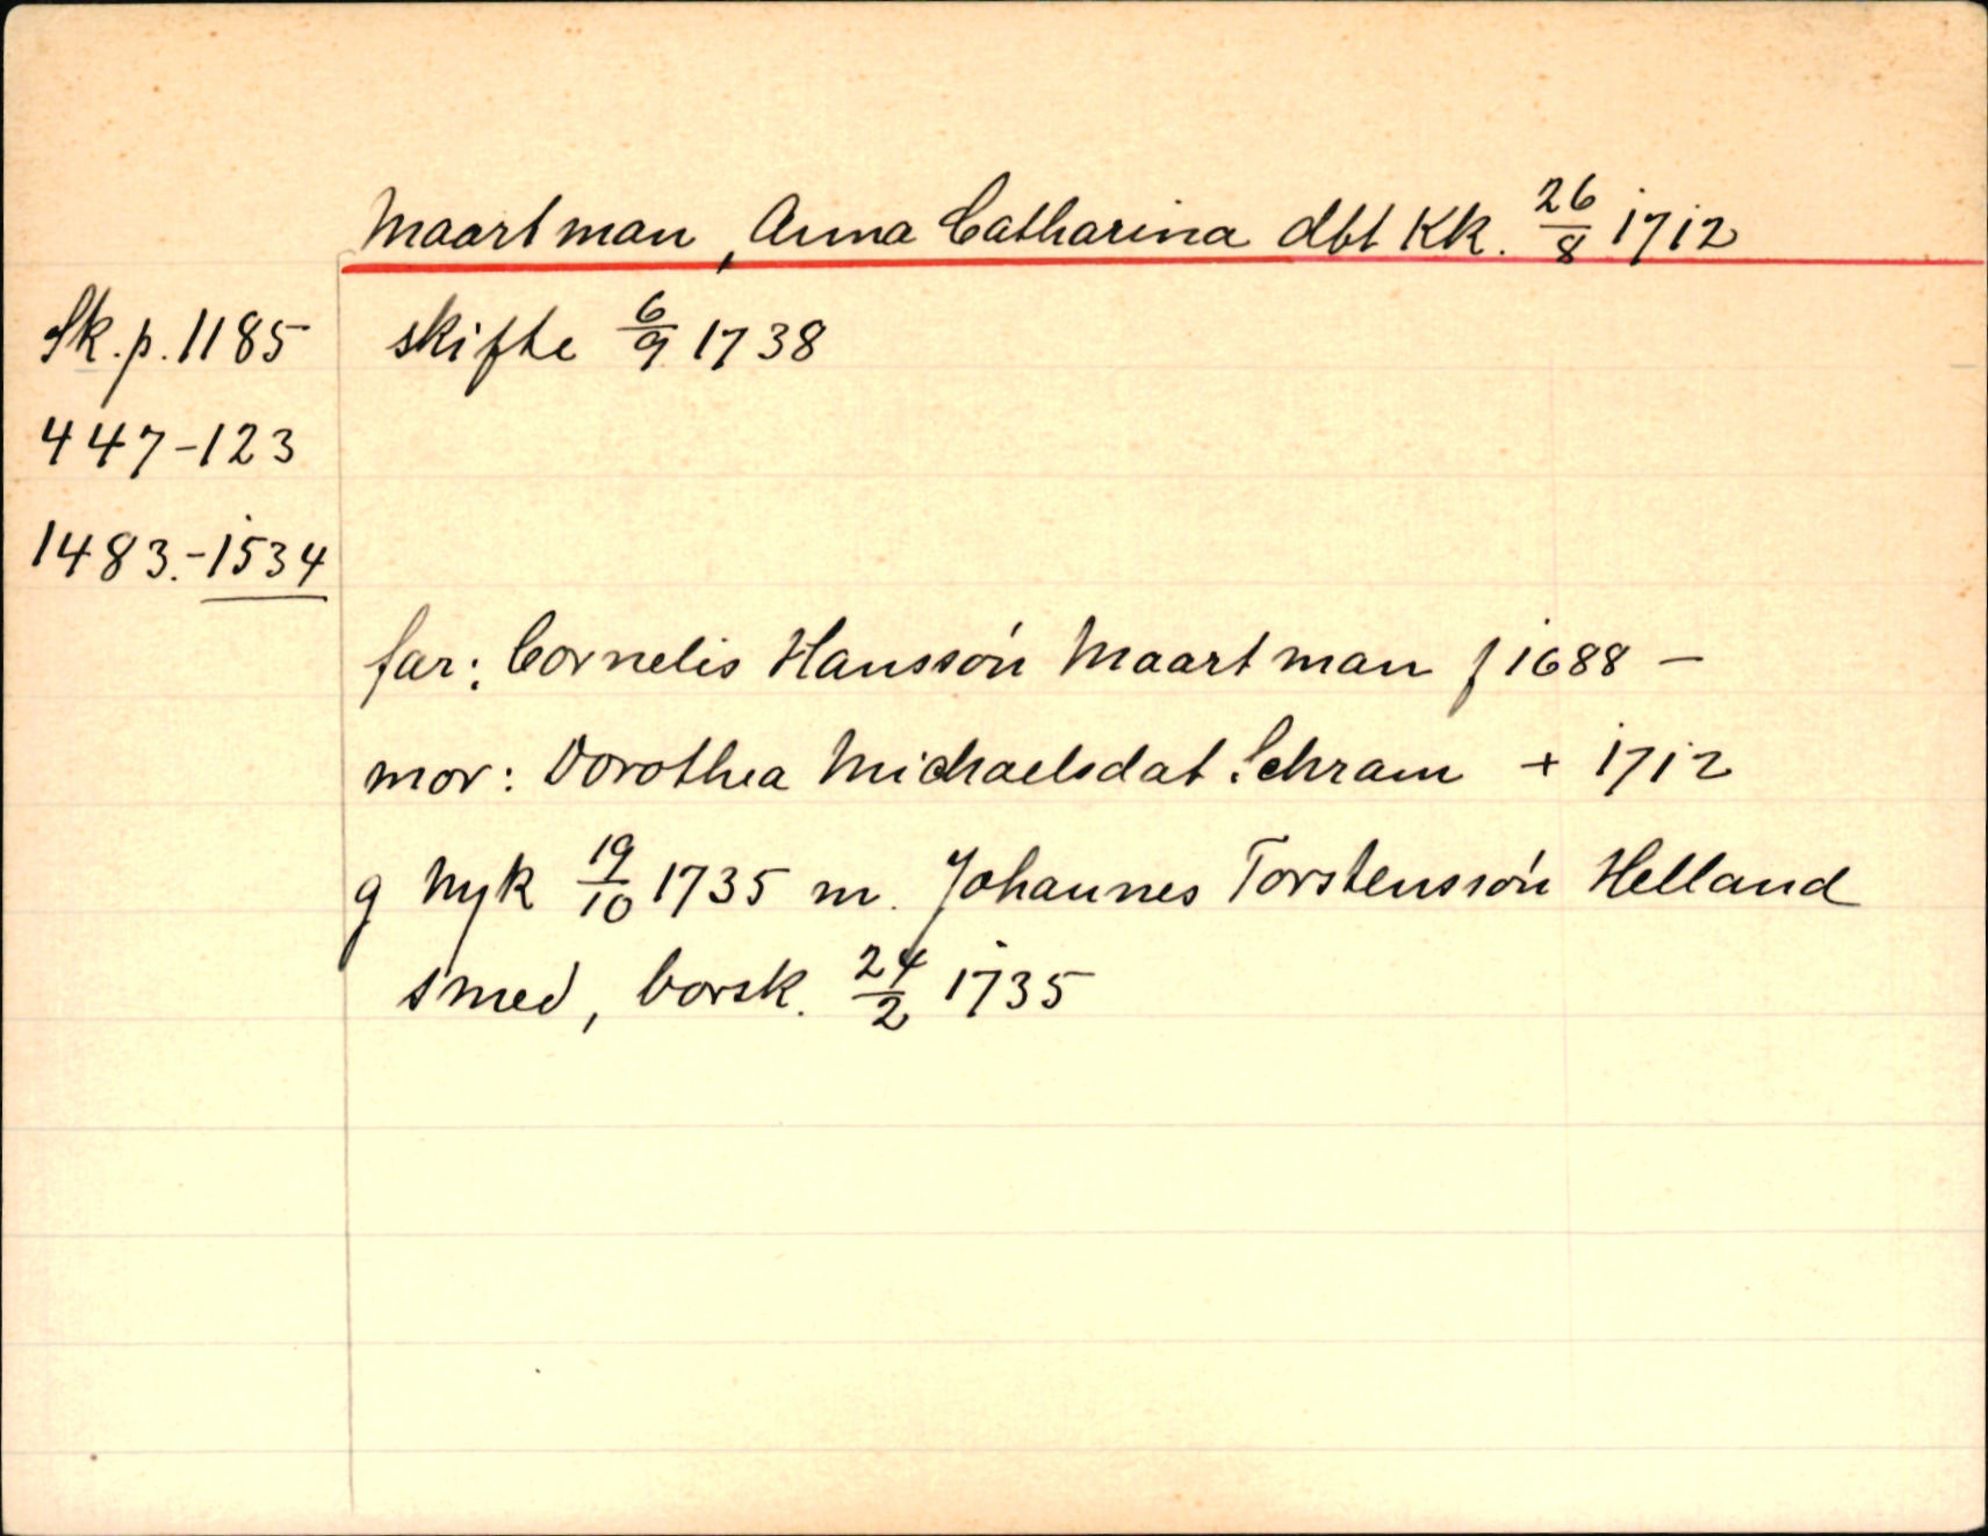 Maartman, Anna Catharina dbt Kk. 26/8 1712
Sk.p. 1185 skifte 6/9 1738
447-123
1483.-1534
far: Cornelis Hanssón Maartman f 1688 –
mor: Dorothea Michaelsdat Schram + 1712
g Nyk 19/10 1735 m. Johannes Torstenssón Helland
smed, borsk. 24/2 1735